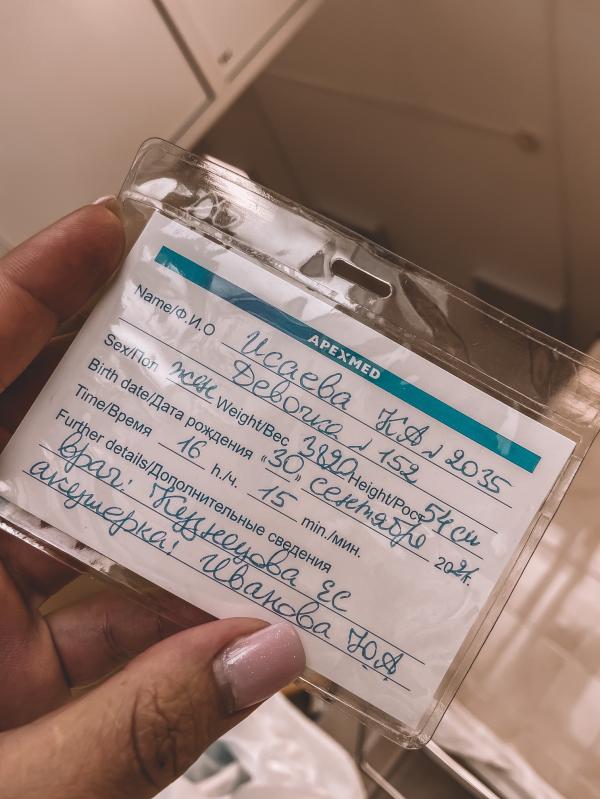 APEXMED
Name/Ф.И.О Исаева К.А. № 2035
Девочка № 152
Sex/Пол жен Weight/Вес 3320 Height/Рост 54 см
Birth date/Дата рождения «30» сентября 2021г.
Time/Время 16 h./ч. 15 min./мин.
Further details/Дополнительные сведения
врач: Кузнецова ЕС
акушерка: Иванова Ю.А